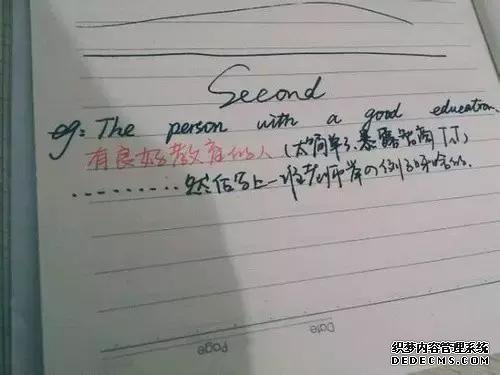 Second
eg: The person with a good education.
有良好教育的人（太简单了、暴露智商TT）
......... 然后写上一班老师举の例子
Date
Page
织梦内容管理系统
DEDECMS.COM